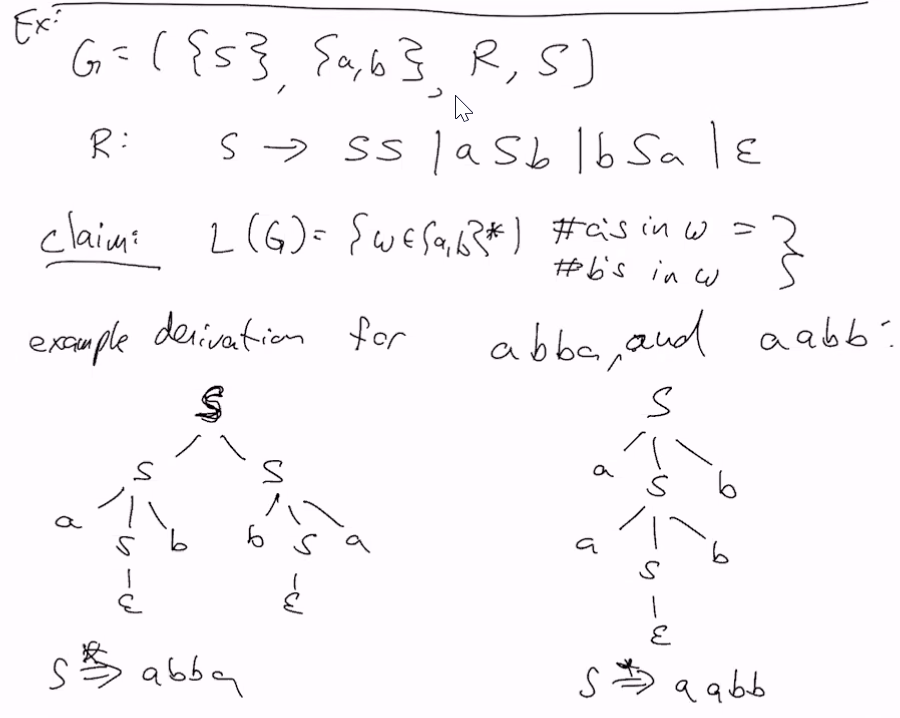 Ex:
G = ( {S}, {a,b}, R, S )
R: S → SS | aSb | bSa | ε
claim: L(G) = { w ∈ {a,b}* | #a's in w = #b's in w }
example derivation for abba, and aabb:
S
S S
a S b b S a
ε ε
S ⇒* abba
S
a S b
a S b
ε
S ⇒* aabb